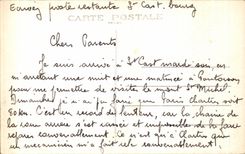 Ecrivez poste restante St Cast. bourg
CARTE POSTALE
Chers Parents
Je suis arrivé à St Cast mardi soir, en
m'arrêtant une nuit et une matinée à Pontorson
pour me permettre de visiter le mont St Michel
Dimanche je n'ai pu faire que Paris Chartres soit
80km. C'est un record de lenteur, car la chaine de
la roue arrière s'est coincée et impossible de la faire
réparer convenablement. Ce n'est qu'à Chartres que
un mécanicien m'a fait convenablement